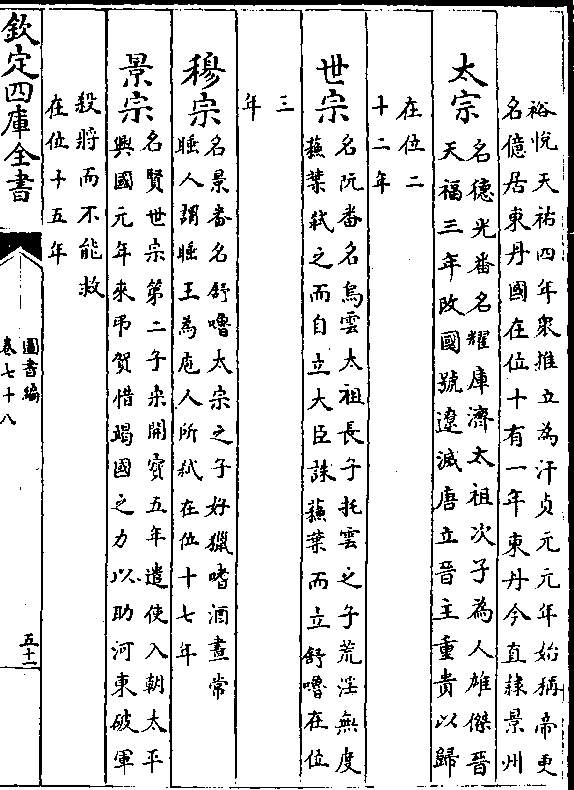 裕悅天祐四年衆推立為汗貞元元年始稱帝更
名億居東丹國在位十有一年東丹今直隷景州
太宗
名德光番名耀庫濟太祖次子為人雄傑晉
天福三年改國號遼滅唐立晉主重貴以歸
在位二
十二年
世宗
名阮番名烏雲太祖長子托雲之子荒淫無度
蘓葉弑之而自立大臣誅蘓葉而立舒嚕在位
三
年
穆宗
名景番名舒嚕太宗之子好獵嗜酒晝常
睡人謂睡王為庖人所弑在位十七年
景宗
名賢世宗第二子宋開寳五年遣使入朝太平
興國元年來弔賀惜竭國之力以助河東破軍
殺將而不能救
在位十五年
欽定四庫全書
圖書編
卷七十八
五十一